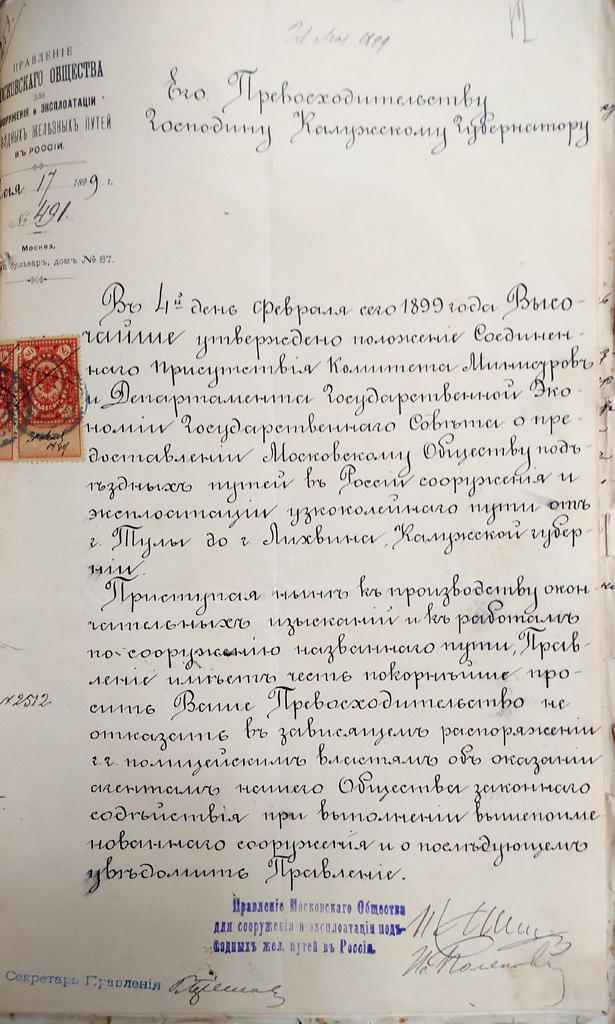 21 Мая 1899
ПРАВЛЕНІЕ
МОСКОВСКАГО ОБЩЕСТВА
для
СООРУЖЕНІЯ и ЭКСПЛОАТАЦІИ
ПОДЪѢЗДНЫХЪ ЖЕЛѢЗНЫХЪ ПУТЕЙ
ВЪ РОССІИ.
Мая 17 1899 г.
№ 491.
Москва,
бульваръ, домъ № 87.
Его Превосходительству
Господину Калужскому Губернатору
Въ 4й день февраля сего 1899 года Высо-
чайше утверждено положеніе Соединен-
наго Присутствія Комитета Министровъ
и Департамента Государственной Эко-
номіи Государственнаго Совѣта о пре-
доставленіи Московскому Обществу подъ-
ѣздныхъ путей въ Россіи сооруженія и
эксплоатаціи узкоколейнаго пути отъ
г. Тулы до г. Лихвина, Калужской губер-
ніи.
Приступая нынѣ къ производству окон-
чательныхъ изысканій и къ работамъ
по сооруженію названнаго пути, Прав-
леніе имѣетъ честь покорнѣйше про-
сить Ваше Превосходительство не
отказать въ зависящемъ распоряженіи
г.г. полицейскимъ властямъ объ оказаніи
агентамъ нашего Общества законнаго
содѣйствія при выполненіи вышепоиме
нованнаго сооруженія и о послѣдующемъ
увѣдомить Правленіе.
№2512
Правленіе Московскаго Общества
для сооруженія и эксплоатаціи подъ-
ѣздныхъ жел. путей въ Россіи.
Секретарь Правленія